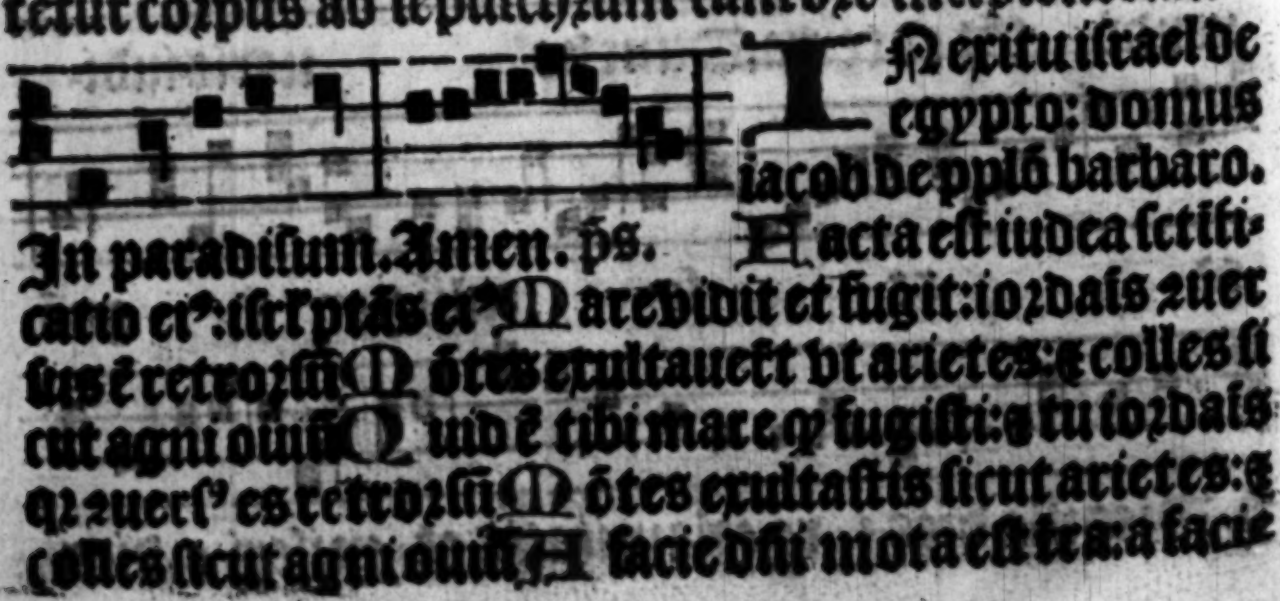 tetur corpus ad sepulchrum
IN exitu israel de
egypto: domus
iacob de pplō barbaro.
In paradisum. Amen. p̄s.
Facta est iudea sctīfi-
catio eiꝰ: isrl̄ ptās eiꝰ Mare vidit et fugit: iordaīs ꝯuer
sus ē retrorsū Mōtes exultauer̄t vt arietes: ⁊ colles si
cut agni ouiū Quid ē tibi mare ꝙ fugisti: ⁊ tu iordaīs
qꝛ ꝯuersꝰ es retrorsū Mōtes exultastis sicut arietes: ⁊
colles sicut agni ouiū A facie dn̄i mota est t̄ra: a facie